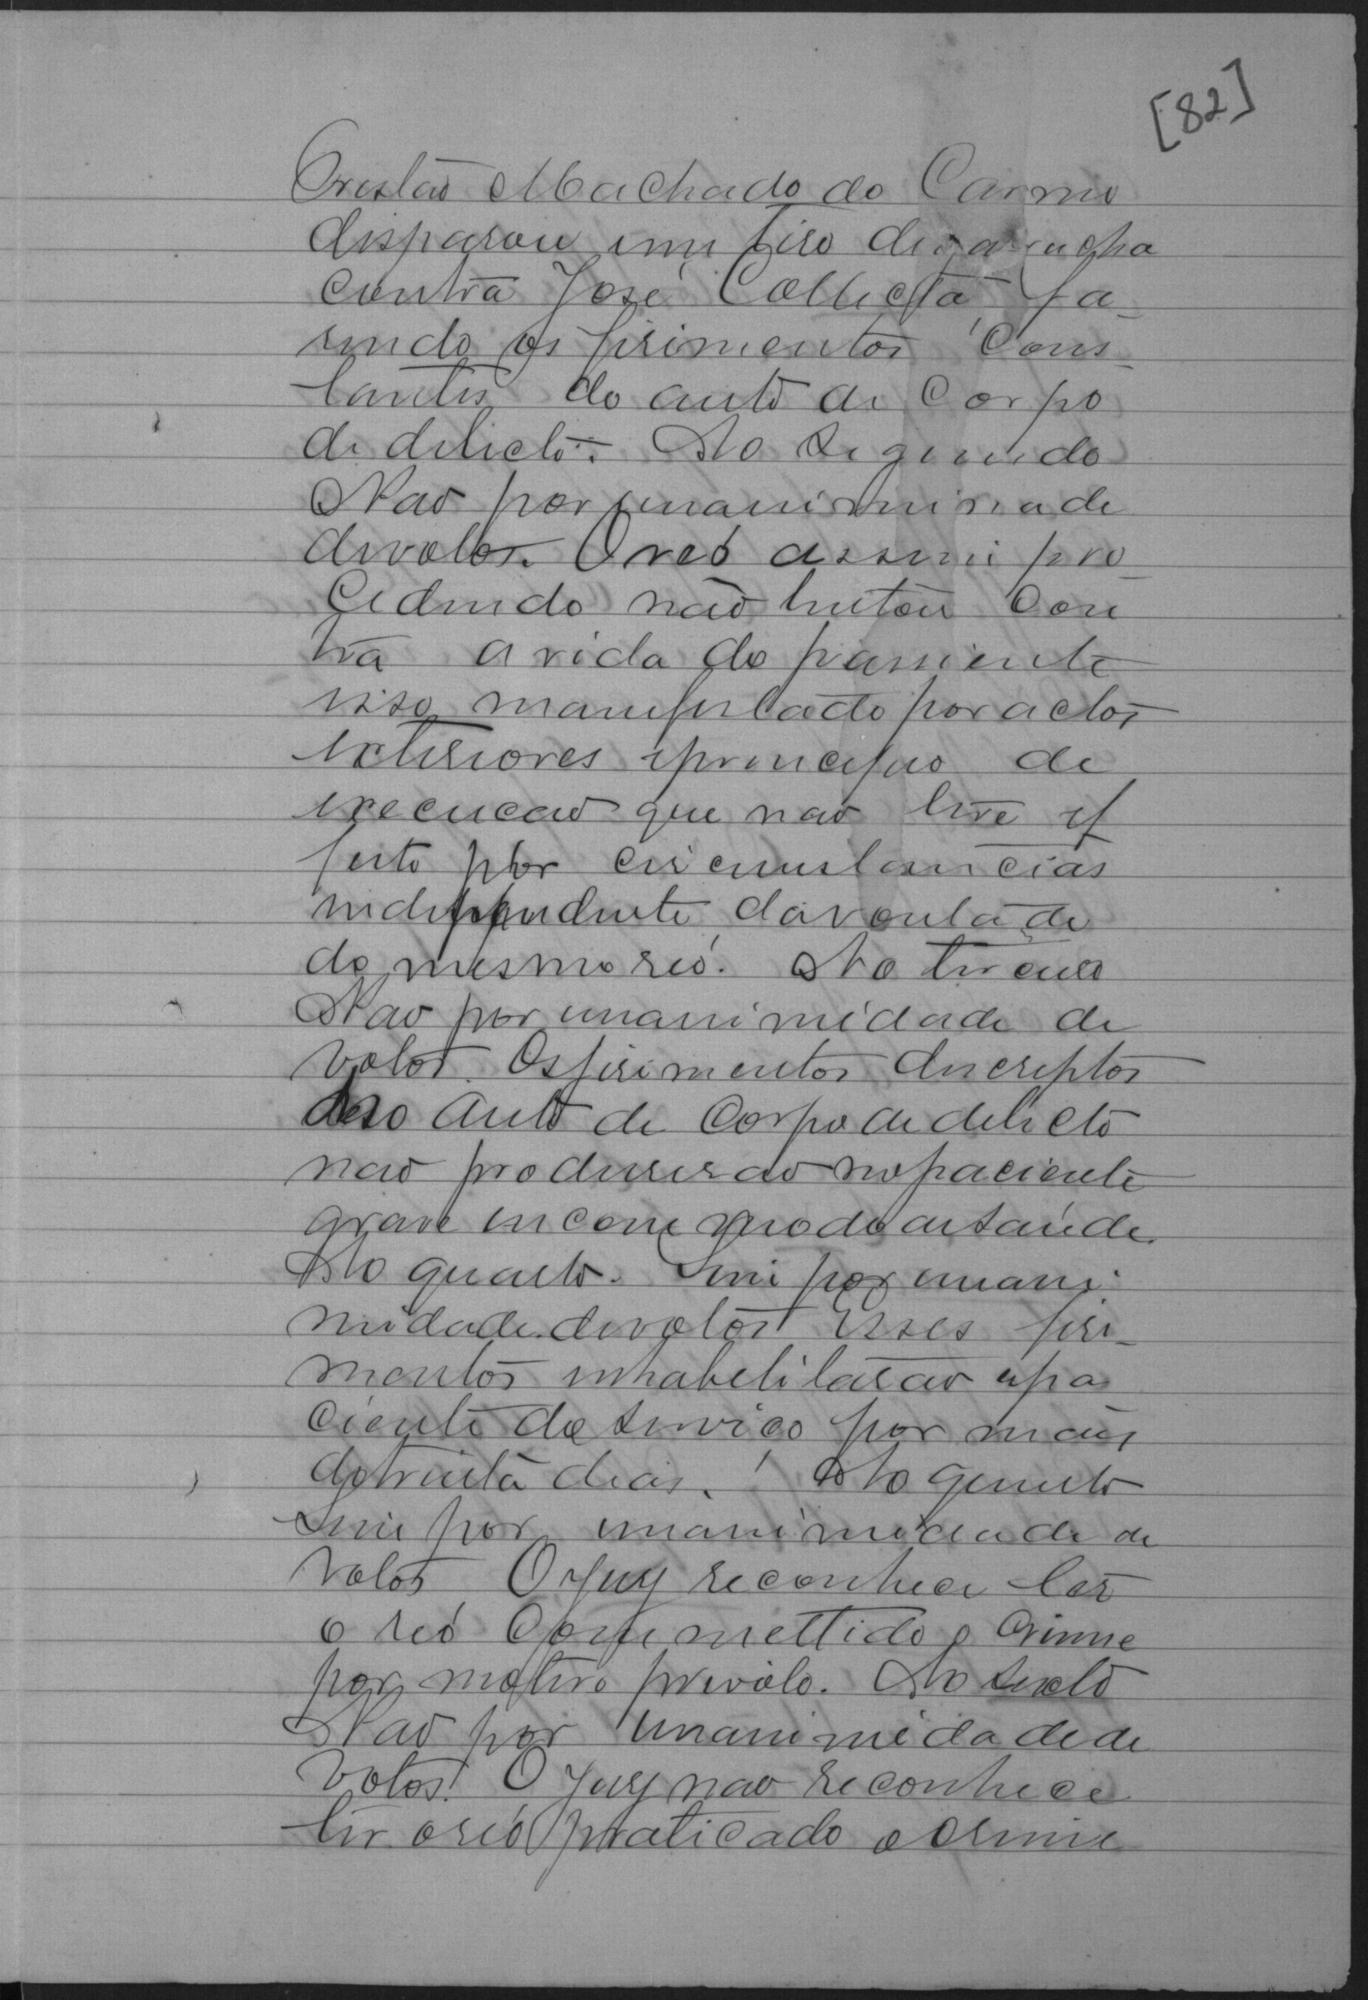 [82]
Cristão Machado do Carmo
disparou um tiro de garrucha
contra José Collecta, fa-
sendo os ferimentos cons-
tantes do auto de corpo
de delicto. Ao segundo
Não por unanimidade
de votos. O reó assim pro-
cedendo não tentou con
tra a vida do passiente
isso manifestado por actos
exteriores e principio de
execucao que nao teve ef
feito por circumstancias
independente da vontade
do mesmo reó. Ao terceiro
Nao por unanimidade de
votos. Os ferimentos descriptos
no auto de corpo de delicto
nao produsirao no paciente
grave incommodo de saúde.
Ao quarto. Sim por unani-
midade de votos Esses feri-
mentos inhabelitarao o pa
ciente do serviço por mais
de trinta dias. Ao quinto
Sim por unanimidade de
votos O jury reconhece ter
o reó commettido o crime
por motivo frivolo. Ao sexto
Nao por unanimidade de
votos. O jury nao reconhece
ter o reó praticado o crime